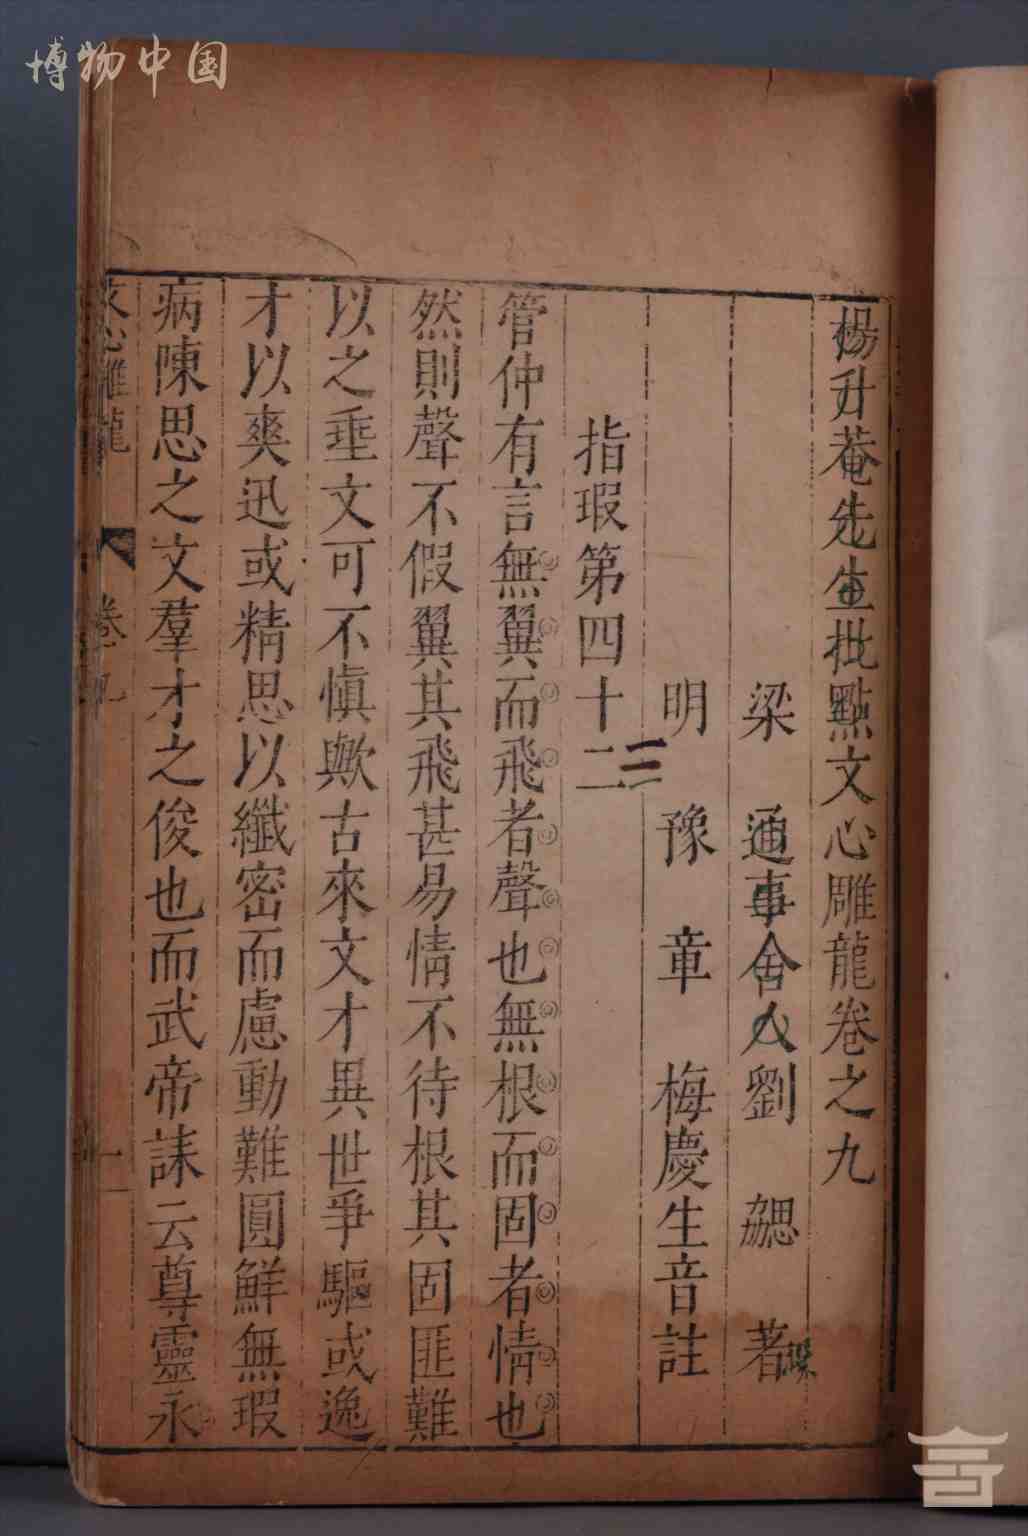 博物中国
楊升菴先生批點文心雕龍卷之九
梁 通事舍人劉 勰 著
明 豫 章 梅慶生音註
指瑕第四十二
三
管仲有言無翼而飛者聲也無根而固者情也
然則聲不假翼其飛甚易情不待根其固匪難
以之垂文可不慎歟古來文才異世爭驅或逸
才以爽迅或精思以纖密而慮動難圓鮮無瑕
病陳思之文羣才之俊也而武帝誄云尊靈永
文心雕龍 卷九 一